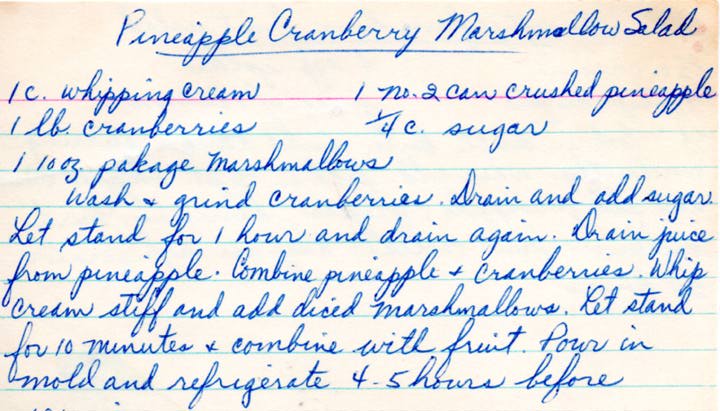 Pineapple Cranberry Marshmallow Salad
1 c. whipping cream 1 no. 2 can crushed pineapple
1 lb. cranberries 1/4 c. sugar
1 10 oz. pakage Marshmallows
Wash & grind cranberries. Drain and add sugar.
Let stand for 1 hour and drain again. Drain juice
from pineapple. Combine pineapple & cranberries. Whip
cream stiff and add diced marshmallows. Let stand
for 10 minutes & combine with fruit. Pour in
mold and refrigerate 4-5 hours before